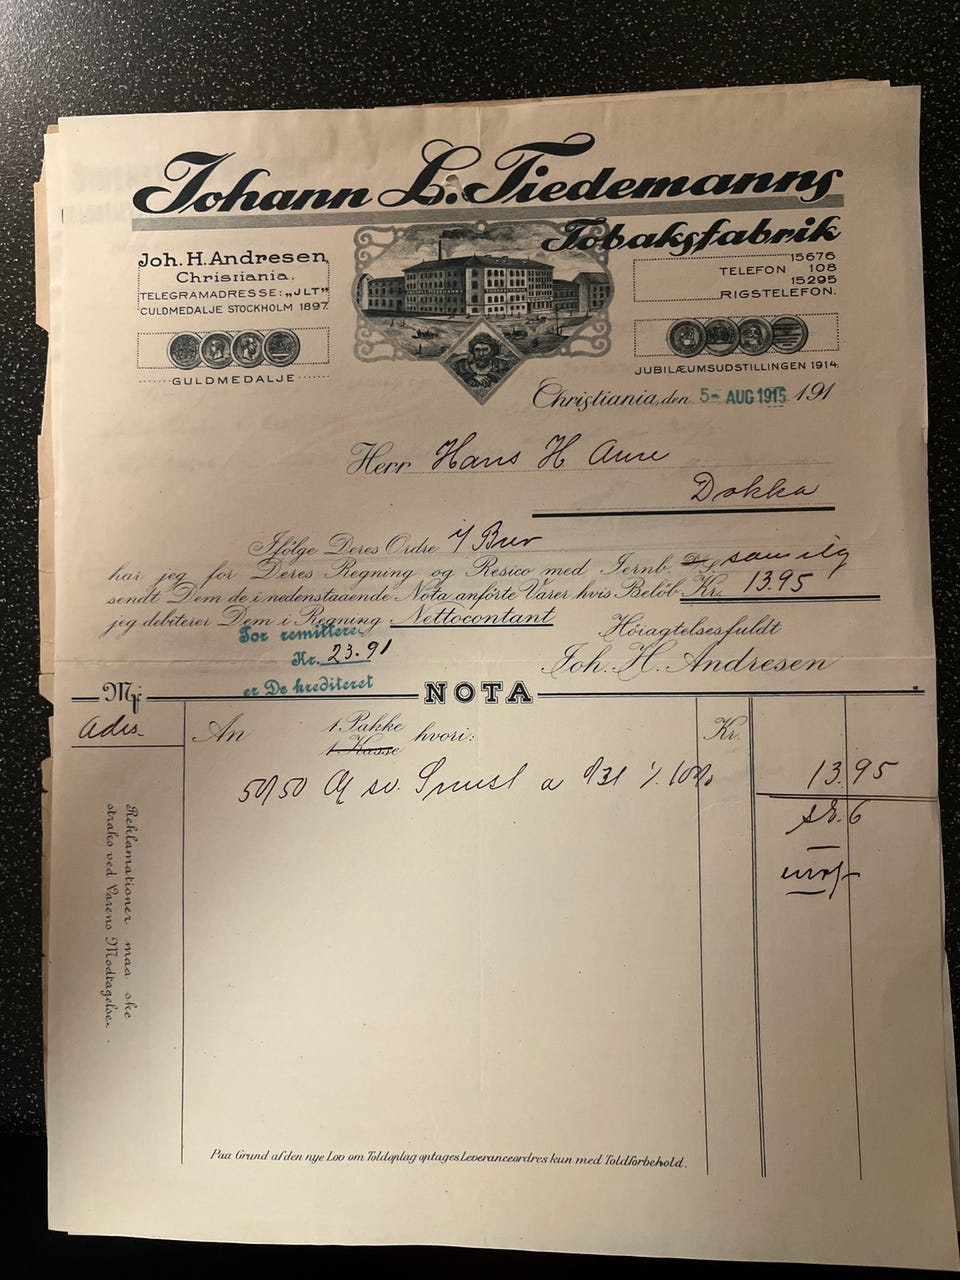 Johann L. Tiedemanns
Tobaksfabrik
Joh. H. Andresen,
Christiania.
TELEGRAMADRESSE: „JLT”
GULDMEDALJE STOCKHOLM 1897.
GULDMEDALJE
15676
TELEFON 108
15295
RIGSTELEFON.
JUBILÆUMSUDSTILLINGEN 1914.
Christiania, den 5- AUG 1915 191
Herr Hans H
Dokka
Ifölge Deres Ordre Brev
har jeg for Deres Regning og Resico med Jernb.
sendt Dem de i nedenstaaende Nota anförte Varer hvis Belöb Kr. 13.95
jeg debiterer Dem i Regning Nettocontant
Höiagtelsesfuldt
Joh. H. Andresen
For remitteret
Kr. 23.91
er De krediteret
NOTA
An 1 Pakke hvori: Kr.
1 Kasse
50/50 sv. a 10% 13.95
6
Reklamationer maa ske
straks ved Varens Modtagelse.
Paa Grund af den nye Lov om Toldoplag optages Leveranceordres kun med Toldforbehold.